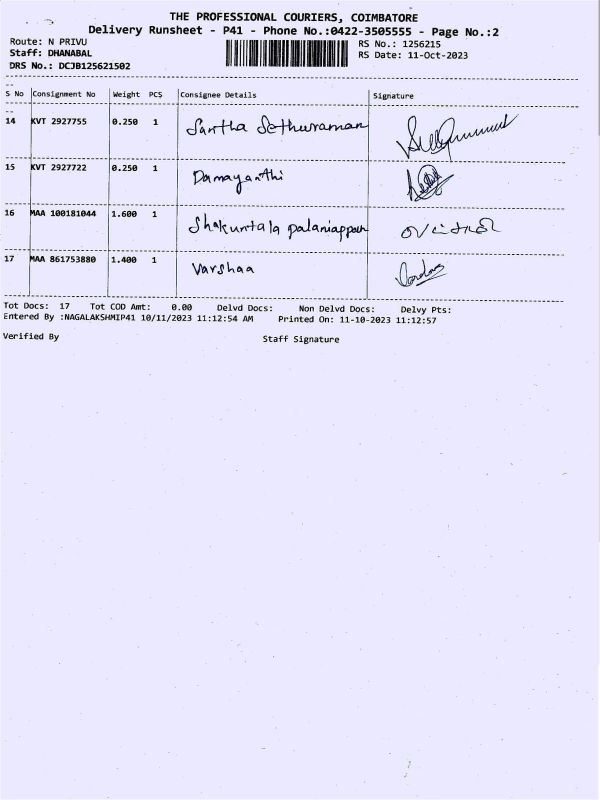 THE PROFESSIONAL COURIERS, COIMBATORE
Delivery Runsheet - P41 - Phone No.:0422-3505555 - Page No.:2
Route: N PRIVU
RS No.: 1256215
Staff: DHANABAL
RS Date: 11-Oct-2023
DRS No.: DCJB125621502
S No Consignment No Weight PCS Consignee Details Signature
14 KVT 2927755 0.250 1 Santha Sethuraman
15 KVT 2927722 0.250 1 Damayanthi
16 MAA 100181044 1.600 1 Shakuntala palaniappan
17 MAA 861753880 1.400 1 Varshaa
Tot Docs: 17 Tot COD Amt: 0.00 Delvd Docs: Non Delvd Docs: Delvy Pts:
Entered By :NAGALAKSHMIP41 10/11/2023 11:12:54 AM Printed On: 11-10-2023 11:12:57
Verified By Staff Signature